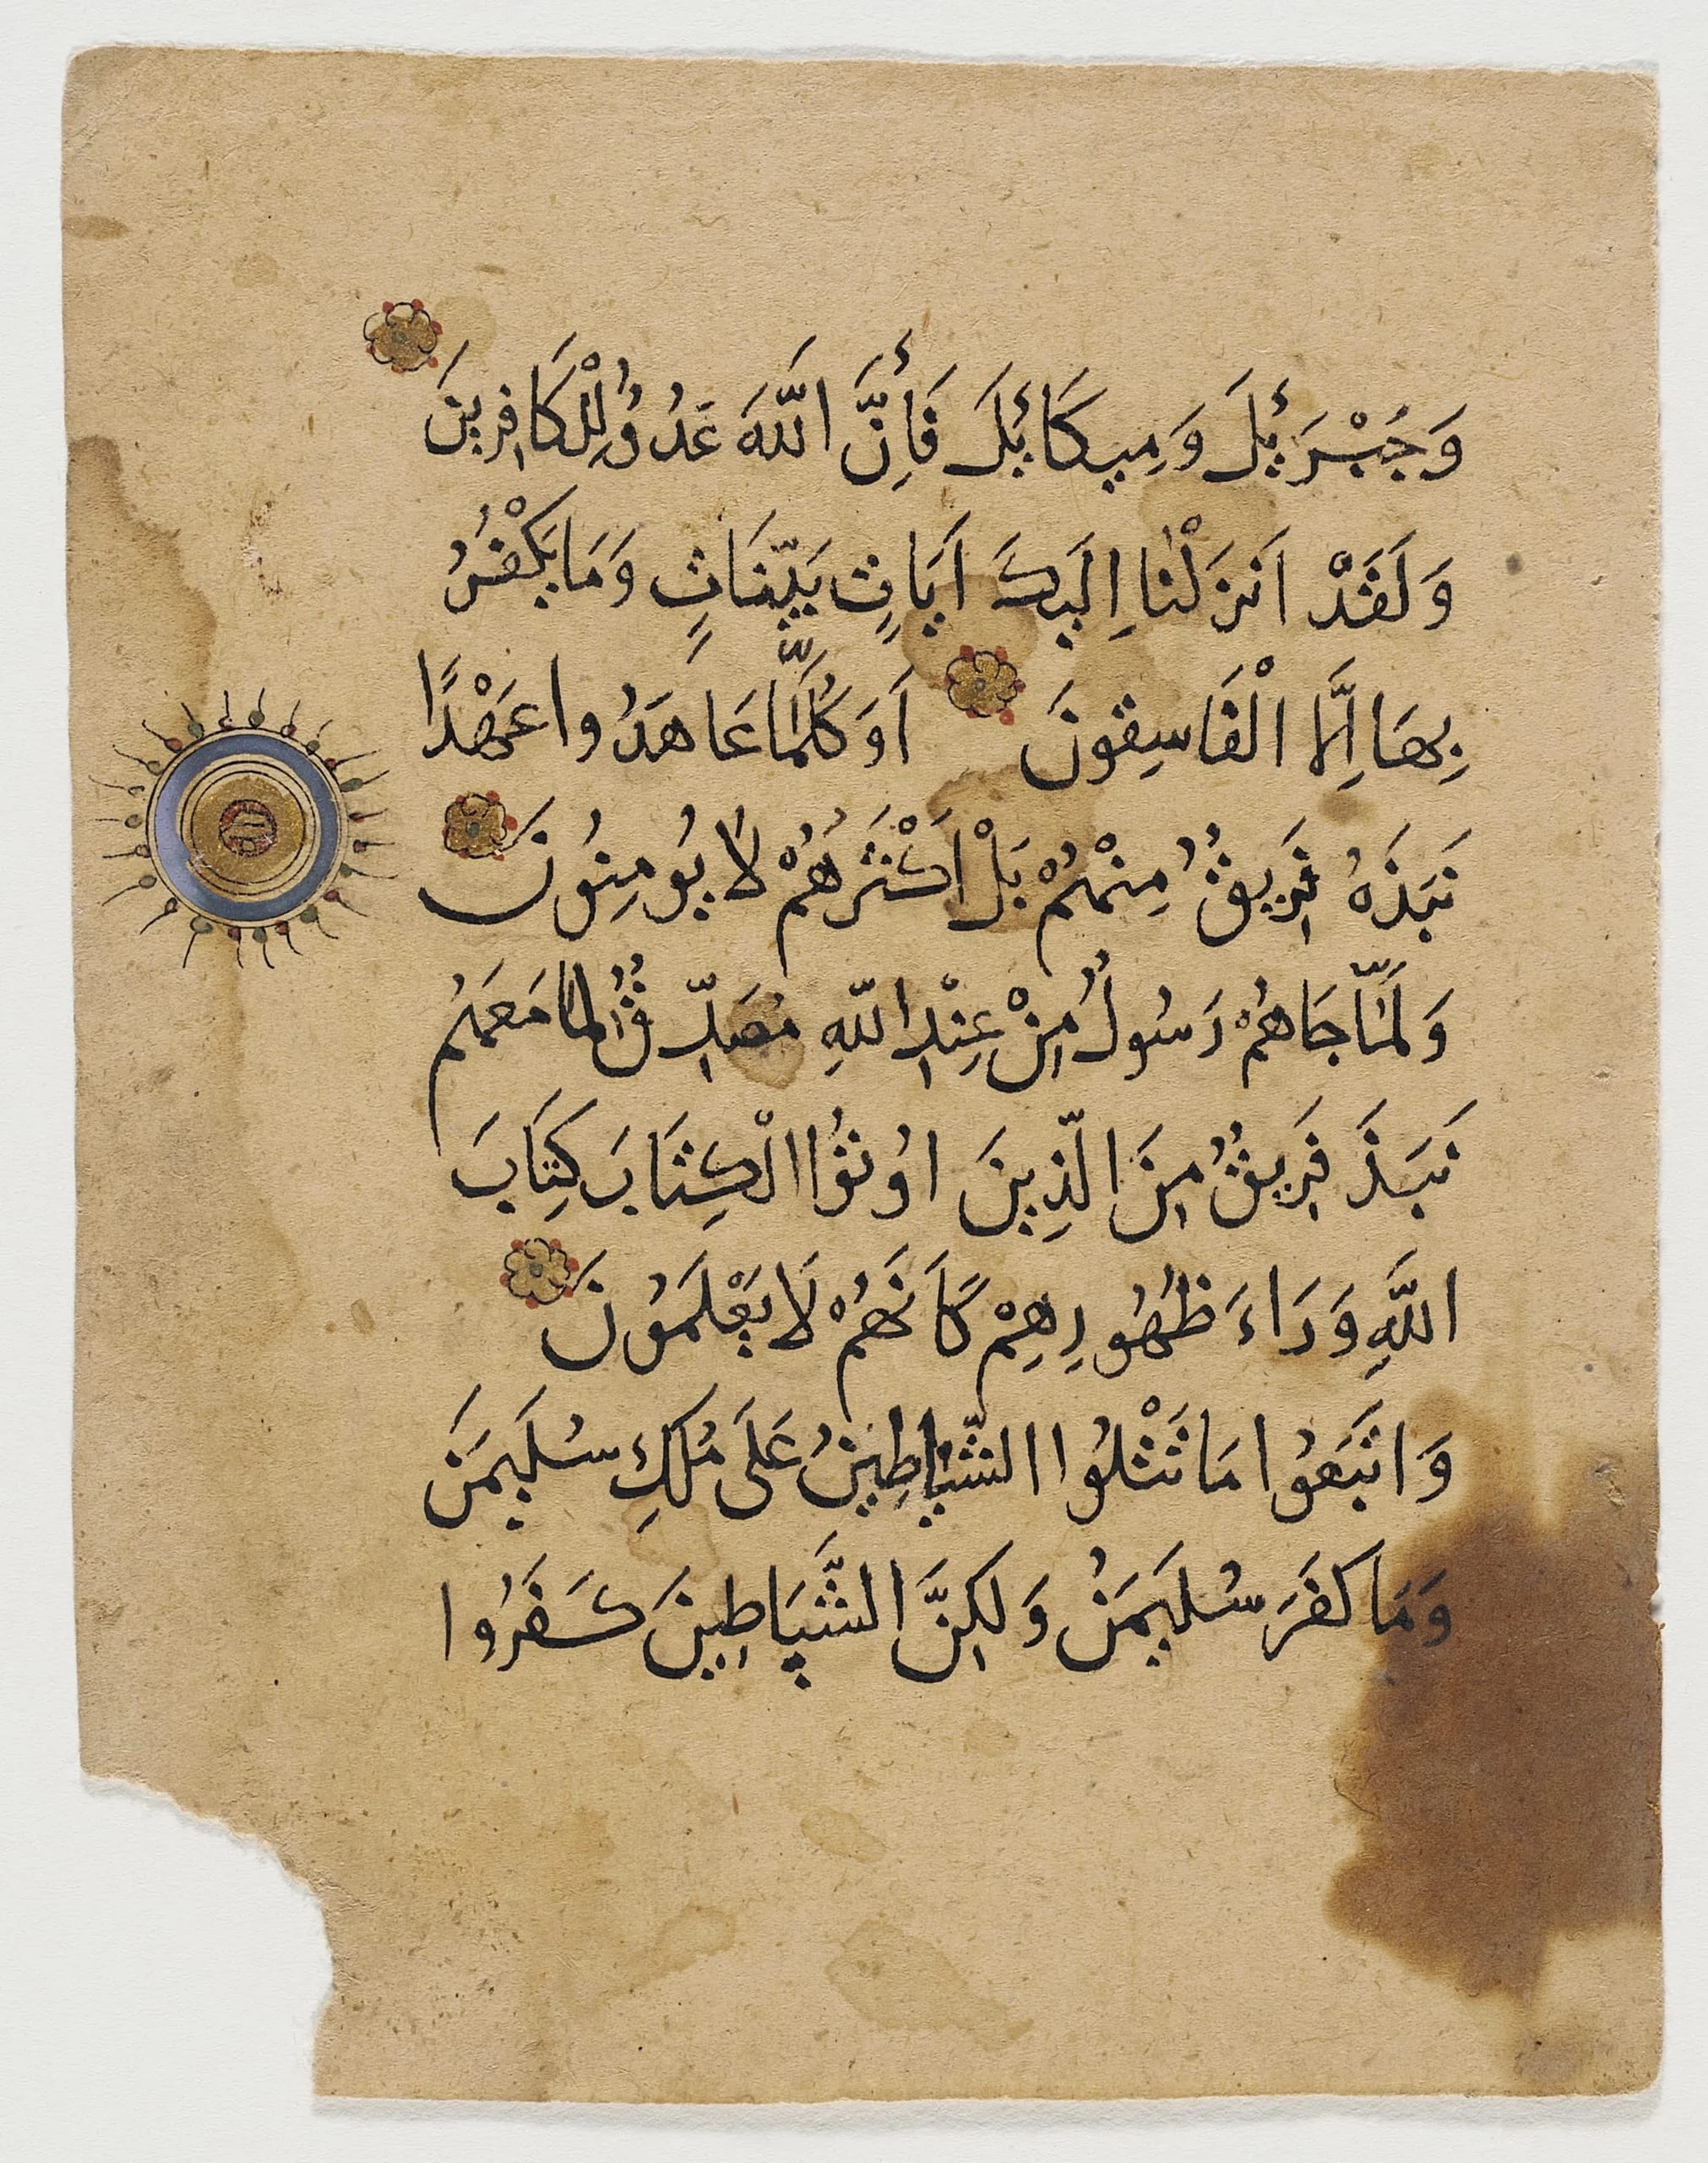 وَجَبْرَئِلَ وَمِيكَائِلَ فَأِنَّ اَللّهَ عَدُوُ لِلْكَافِرِينَ
وَلَقَدْ اَنزَلْنَا اِلَيكَ اَيَاتٍ بَيِّنَاتٍ وَمَا يَكْفُرُ
بِهَا اِلَّا الْفَاسِقونَ اَوَكُلَّمَا عَاهَدُوا عَهْدًا
نَبَذَهُ فَرِيقُ مِنْهُمْ بَلْ اَكْثَرُهُمْ لَا يُومِنُونَ
وَلَمَّا جَاهُمْ رَسُولُ مِنْ عِنْدِ اللّهِ مُصَدِّقُ لِمَا مَعَهُم
نَبَذَ فَرِيقُ مِنَ الّذِينَ اوُتُوا الْكِتَابَ كِتَابَ
اللَّهِ وَرَاءَ ظُهُورِهِمْ كَاَنَهُمْ لَا يَعْلَمُونَ
وَاتَبَعُوا مَا تَتْلُوا الشّيَاطِينُ عَلَى مُلكِ سُلَيمَنَ
وَمَا كَفَرَ سُلَيمَنُ وَلَكِنَّ الشَّيَاطِينَ كَفَرُوا